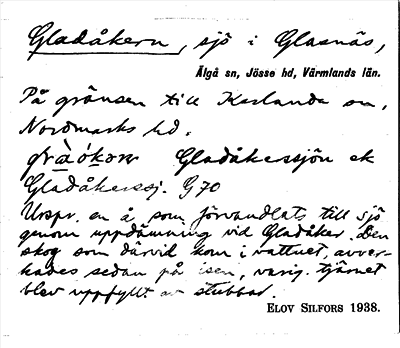 Gladåkern, sjö i Glasnäs,
Älgå sn, Jösse hd, Värmlands län.
På gränsen till Karlanda sn,
Nordmarks hd.
Gladåkessjön ek
Gladåkerssj. G 70
Urspr. en å som förvandlats till sjö
genom uppdämning vid Gladåker. Den
skog som därvid kom i vattnet, avver-
kades sedan på isen, varig. tjärnet
blev uppfyllt av stubbar.
ELOV SILFORS 1938.